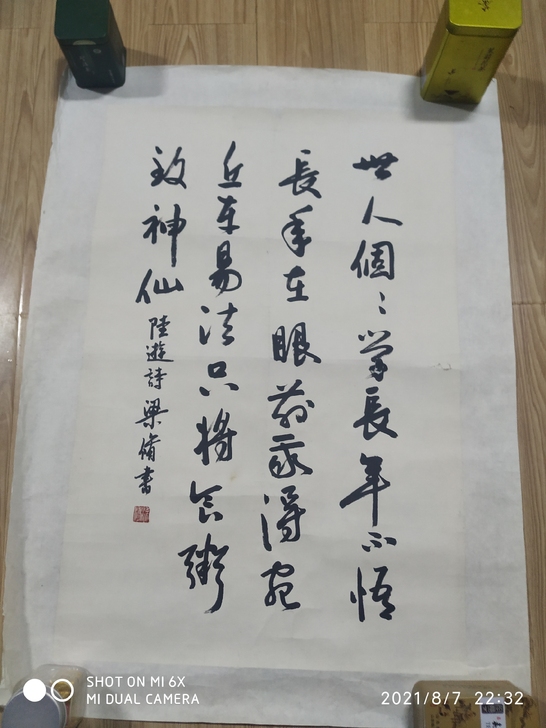 世人個々學長年不悟
長年在眼前我得宛
丘平易法只將食粥
致神仙
陸遊詩 梁脩書
SHOT ON MI 6X
MI DUAL CAMERA
2021/8/7 22:32